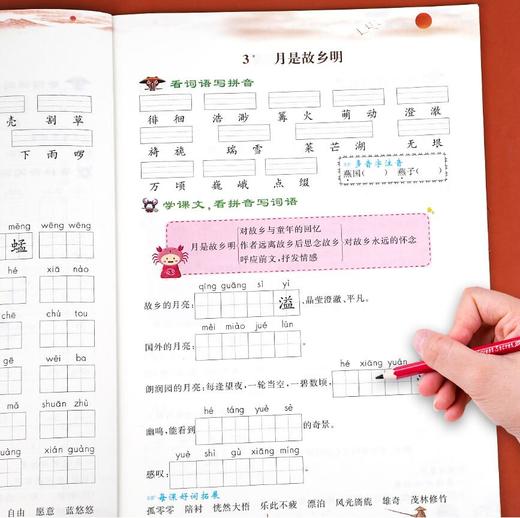 壳 割 草
下 雨 啰
měng wēng wēng
蜢
hé xiā nào
chú tóu
gē wéi ba
mā shuān zhù
xián guàng
自由 愿意 蓝悠悠
3* 月是故乡明
看词语写拼音
徘 徊 浩 渺 篝 火 萌 动 澄 澈
旖 旎 瑞 雪 莱 芒 湖 无 垠
万 顷 巍 峨 点 缀
多音字注音
燕园( ) 燕子( )
学课文,看拼音写词语
月是故乡明
对故乡与童年的回忆
作者远离故乡后思念故乡
呼应前文,抒发情感
对故乡永远的怀念
qíng guāng sì yì
故乡的月亮: 溢 ,晶莹澄澈、平凡。
měi miào jué lún
国外的月亮:
hé xiāng yuǎn
朗润园的月亮:每逢望夜,一轮当空,一碧数顷,
hé táng yuè sè
幽鸣,能看到 的奇景。
yuè shì gù xiāng míng
感叹:
每课好词拓展
孤零零 陪衬 恍然大悟 乐此不疲 漂泊 风光旖旎 雄奇 茂林修竹